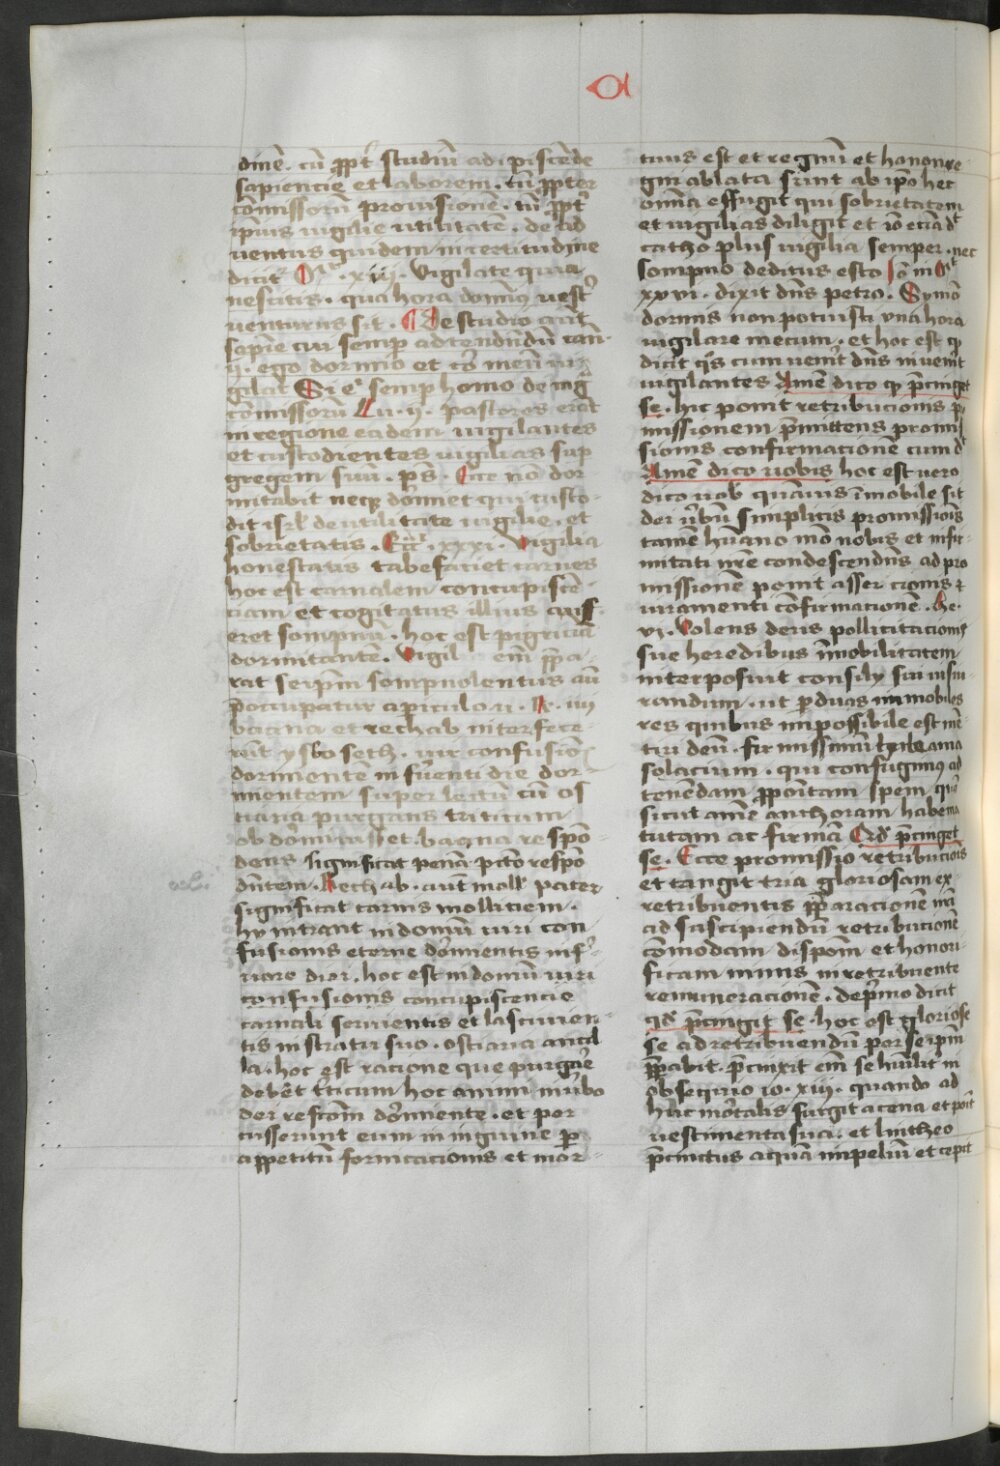 a
dinē. cū ꝓpt̄ studiū adipiscēde
sapiencie et laborem. tū ꝓpter
cōmissorū prouisionē. tū ꝓpt̄
ip̄ius vigilie vtilitatē. de ad
uentus quidem incertitudine
dicit² Mᵗ. xxiiij. Vigilate quia
nescitis. qua hora domin⁹ uest̄
uenturus sit. ¶ De studio aūt
sapīe cui semꝑ adtendendū can.
v. ego dormio et cor meū ui
gilat Si eᵗ semꝑ homo de
cōmissorū Lu. ij. pastores erāt
in regione eadem vigilantes
et custodientes vigilias sup
gregem suū. ps̄. Ecce nō dor
mitabit neqꝫ dormiet qui custo
dit isrl̄ de vtilitate vigilie. et
sobrietatis. Ecc̄i. xxxi. Vigilia
honestatis tabefaciet carnes
hoc est carnalem concupiscē
ciam et cogitatus illius auff
eret sompnū. hoc est pigriciā
dormitantē. Vigil em̄ p̄pa
rat seip̄m sompnolentus aūt
p̄occupatur a periculo. ij. R. iiij
baana et rechab interfece
rūt ysboseth. uir confusiōis
dormiente in feruenti die dor
mientem super lectū cū os
tiaria purgans triticum
obdormiuisset. baana respō
dens significat penā pctō respō
dentem. Rechab. aūt mollis pater
significat carnis molliciem.
hij intrant in domū uiri con
fusionis eterne dormientis inf
uore diei. hoc est in domū uiri
confusionis concupiscencie
carnali seruientis et lasciuien
tis in stratu suo. ostiaria ancil
la. hoc est racione que purgare
debēt triticum hoc animi in
der resistom̄ dormiente. et per
cusserunt eum in inguine per
appetitū fornicacionis et mor
tuus est et regnū et honor re
gni ablata sunt ab ip̄o hec
omīa effugit qui sobrietatem
et vigilias diligit et iō eciā dᵗ
catho plus vigila semper. nec
sompno deditus esto Iō mᵗ
xxvi. dixit dn̄s petro. Symō
dormis non potuisti vna hora
vigilare mecum. et hoc est qđ
dicit q̄s cum uen̄it dn̄s inuen̄it
vigilantes Amē dico qđ p̄cinget
se. hic ponit retribucionis p̄
missionem p̄mittens promis
sionis confirmacionē cum dᵗ
Amē dico uobis hoc est uero
dico uob̄ quāuis īmobile sit
dei ūbū simplicis promissiōis
tamē humano mō nobis et infir
mitati nr̄e condescendēs ad pro
missionē ponit assercionis et
iuramenti cōfirmacionē. He.
vi. Uolens deus pollicitacionis
sue heredibus īmobilitatem
interposuit consilij sui iusiu
randum. ut per duas immobiles
res quibus impossibile est mē
tiri deū. firmissimū habeamus
solacium. qui confugimus ad
tenēdam ꝓpositam spem. quā
sicut anīe anchoram habemus
tutam ac firmā Qđ p̄cinget
se. Ecce promissio retribuciōis
et tangit tria gloriosam ex
retribuentis p̄paracionem
ad suscipiendū retribucionē
cōmodam disposicōm et honori
ficam muneris in retribuente
remuneracionē. de p̄mo dicit
qđ p̄cingit se. hoc est gloriose
se ad retribuendū per seip̄m
p̄parabit. p̄cinxit em̄ se humilit̄ in
obsequio io. xiij. quando ad
huc mortalis surgit a cena et poīt
uestimenta sua. et lintheo
p̄cinctus aquā in peluī et cepit